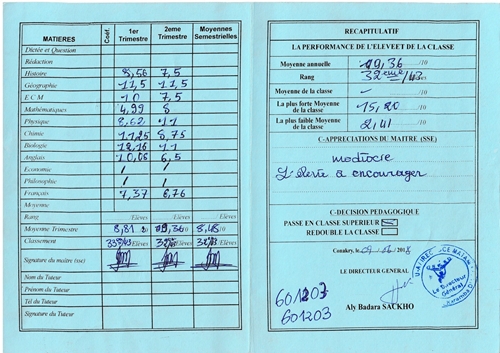 MATIERES Coef. 1er Trimestre 2eme Trimestre Moyennes Semestrielles
Dictée et Question
Rédaction
Histoire 8,56 7,5
Géographie 11,5 11,5
E C M 10 7,5
Mathématiques 4,99 8
Physique 8,62 11
Chimie 11,25 8,75
Biologie 12,16 11
Anglais 10,06 6,5
Economie / /
Philosophie / /
Français 7,37 6,76
Moyenne
Rang /Elèves /Elèves /Elèves
Moyenne Trimestre 8,81
Classement /Elèves /Elèves /Elèves
Signature du maître (sse)
Nom du Tuteur
Prénom du Tuteur
Tél du Tuteur
Signature du Tuteur
RECAPITULATIF
LA PERFORMANCE DE L'ELEVE ET DE LA CLASSE
Moyenne annuelle 9,36 /10
Rang 32ème/43
Moyenne de la classe - /10
La plus forte Moyenne de la classe 15,20 /10
La plus faible Moyenne de la classe 2,41 /10
C-APPRECIATIONS DU MAITRE (SSE)
médiocre
L'élève à encourager
C-DECISION PEDAGOGIQUE
PASSE EN CLASSE SUPERIEUR
REDOUBLE LA CLASSE
Conakry, le 09/06/2018
LE DIRECTEUR GENERAL
601203
601203
Aly Badara SACKHO
Le Directeur Général